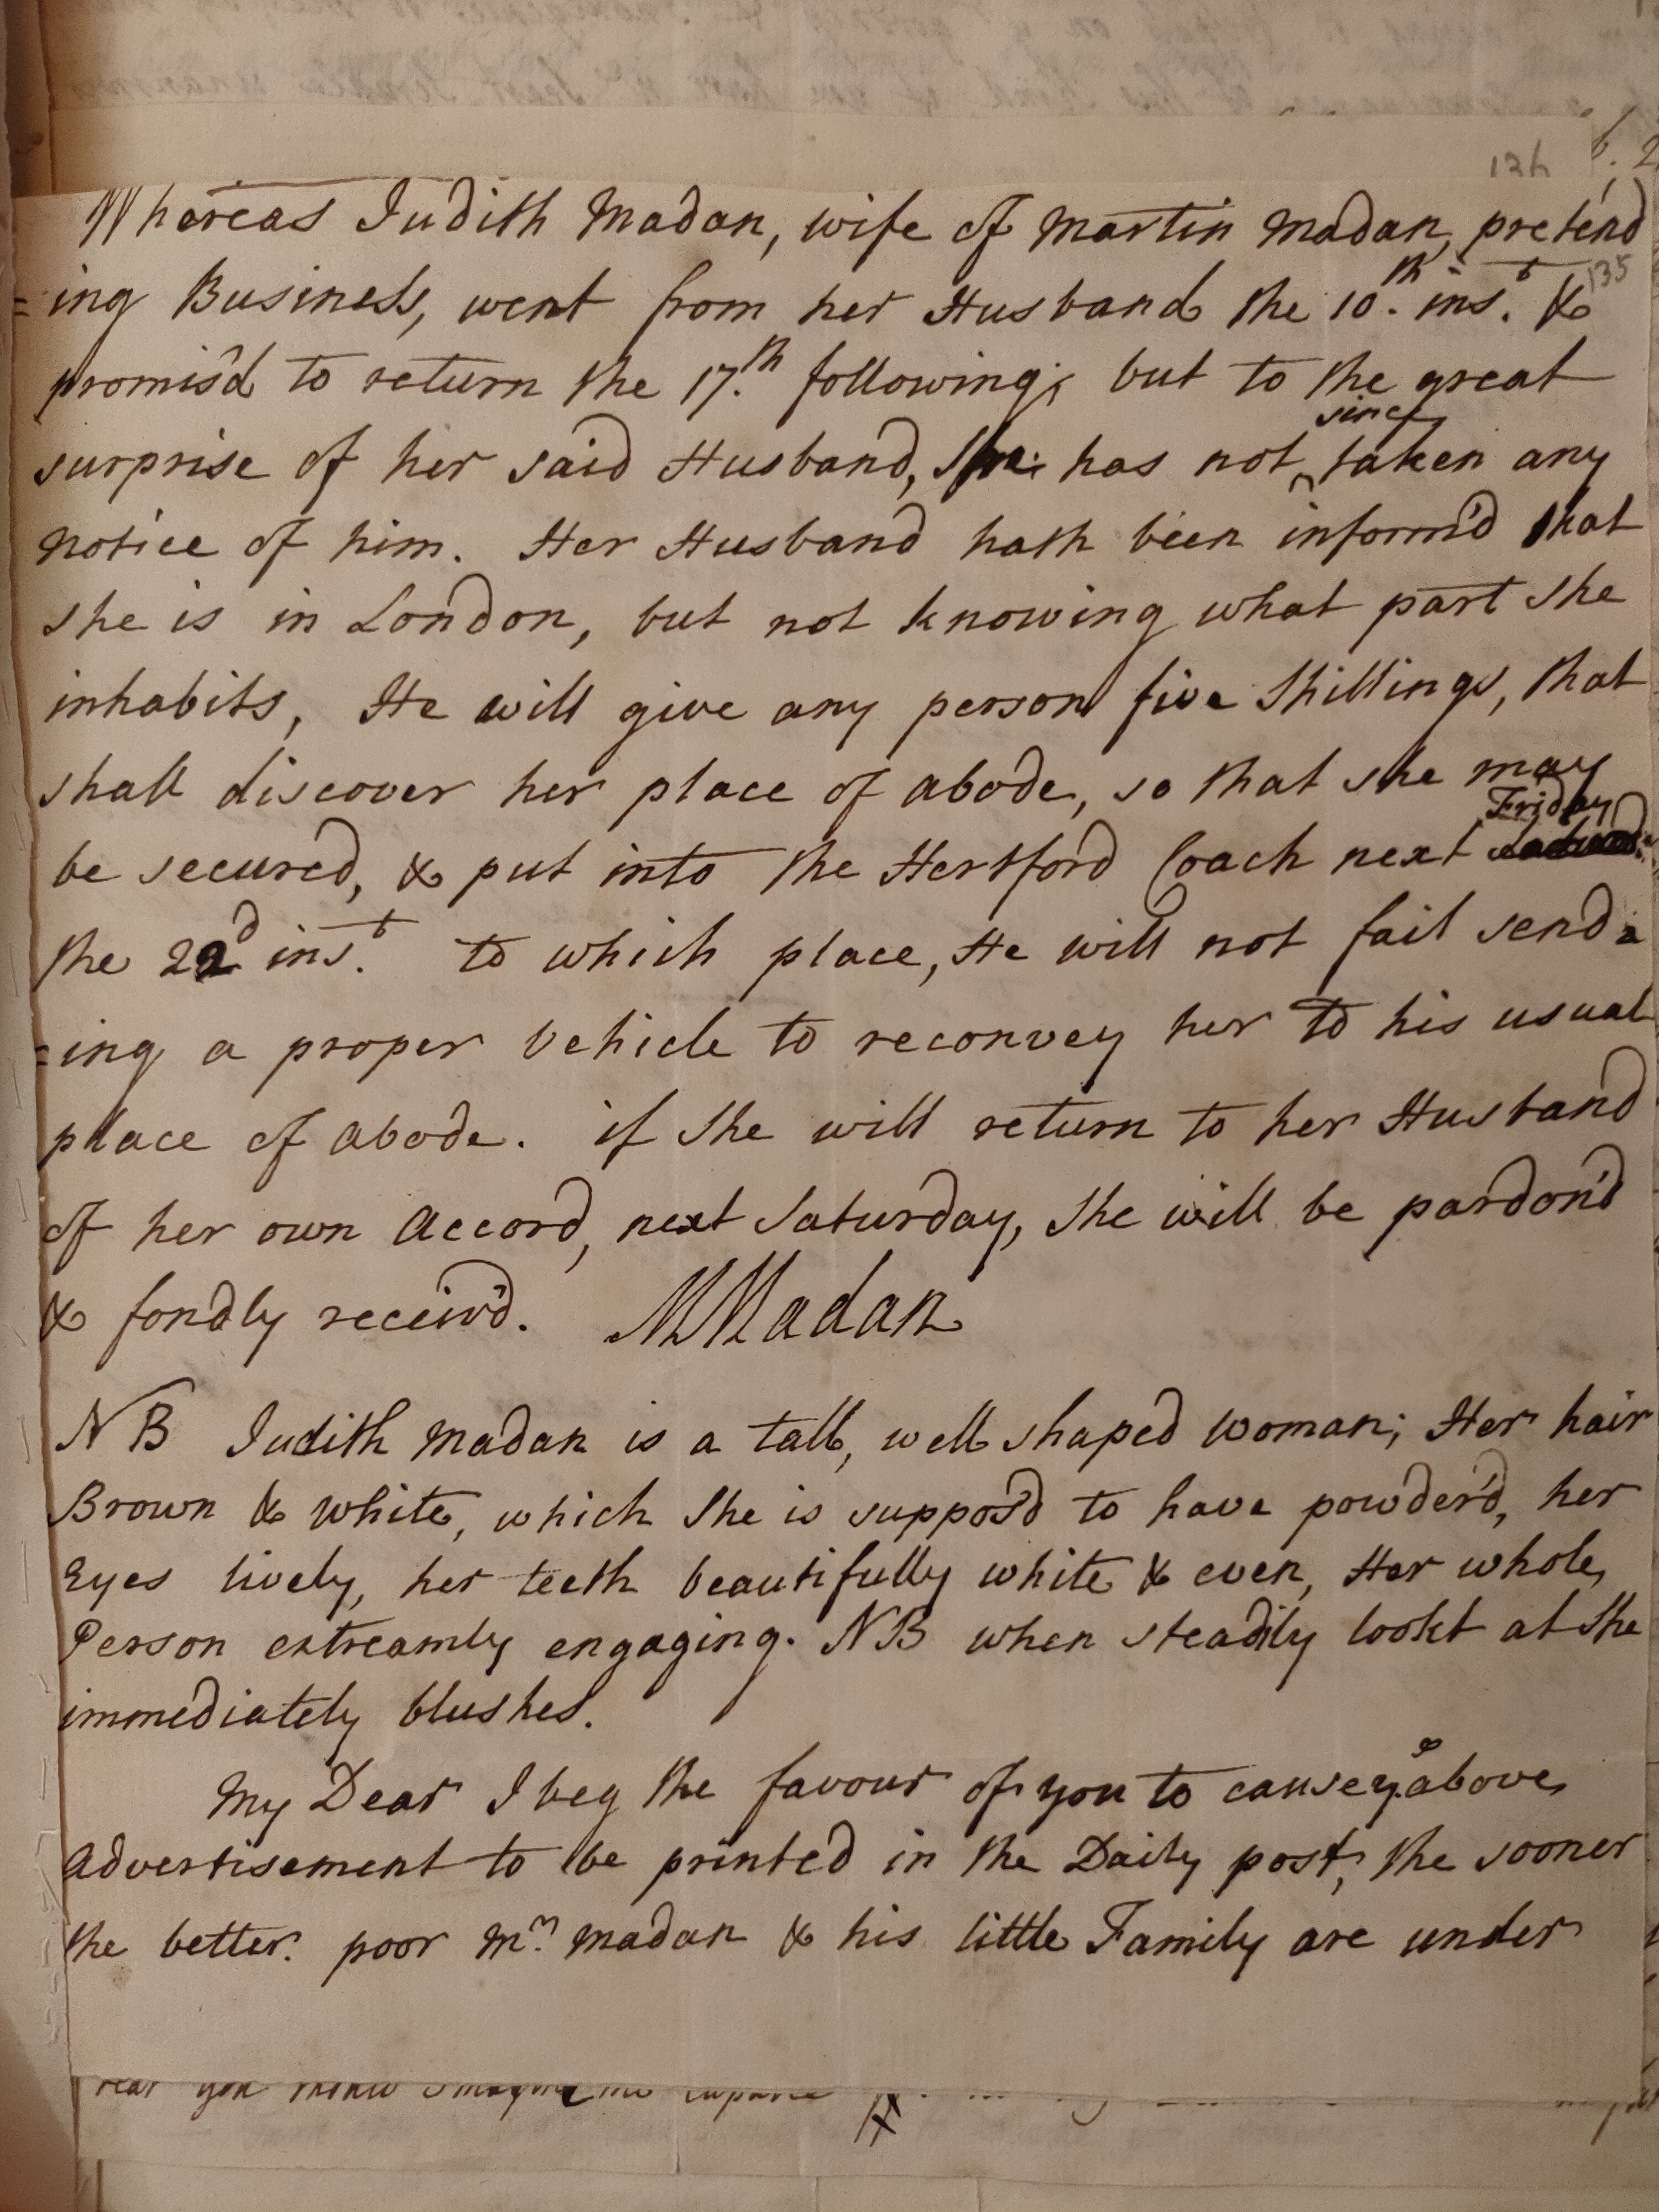 134
Whereas Judith Madan, wife of Martin Madan, pretend
135
=ing Business, went from her Husband the 10.th inst. &
promis'd to return the 17.th following; but to the great
since
surprise of her said Husband, She has not ^ taken any
notice of him. Her Husband hath been inform'd that
she is in London, but not knowing what part she
inhabits, He will give any person five Shillings, that
shall discover her place of abode, so that she may
Friday
be secured, & put into the Hertford Coach next
the 22d inst. to which place, He will not fail send=
=ing a proper Vehicle to reconvey her to his usual
place of abode. if She will return to her Husband
of her own Accord, next Saturday, She will be pardon'd
& fondly receiv'd. MMadan
NB Judith Madan is a tall, well shaped Woman; Her hair
Brown & White, which She is suppos'd to have powder'd, her
Eyes lively, her teeth beautifully white & even, Her whole
Person extreamly engaging. NB when steadily lookt at She
immediately blushes.
My Dear I beg the favour of you to cause ye. above
Advertisement to be printed in the Daily post, the sooner
the better. poor Mr. Madan & his little Family are under